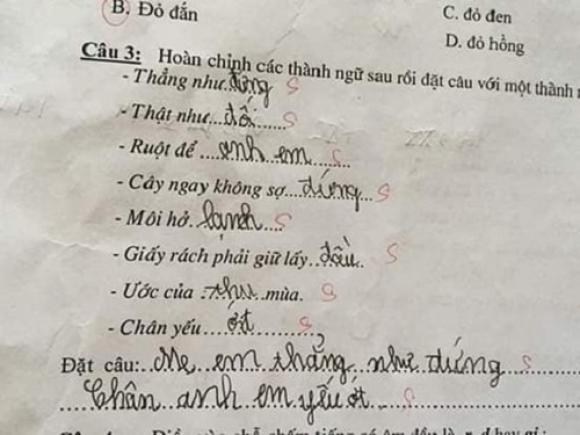 B. Đỏ đắn
C. đỏ đen
D. đỏ hồng
Câu 3: Hoàn chỉnh các thành ngữ sau rồi đặt câu với một thành
- Thẳng như..đứng S
- Thật như...đối...... S
- Ruột để ....anh em...... S
- Cây ngay không sợ....đứng... S
- Môi hở..lạnh.... S
- Giấy rách phải giữ lấy..đầu.. S
- Ước của .thu..mùa. S
- Chân yếu....ớt.......... S
Đặt câu:...Mẹ em thẳng như đứng S
Chân anh em yếu ớt S